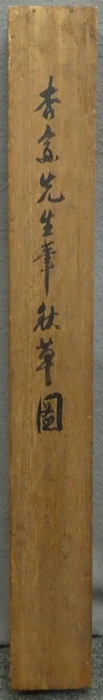 杏斎先生筆秋草圖